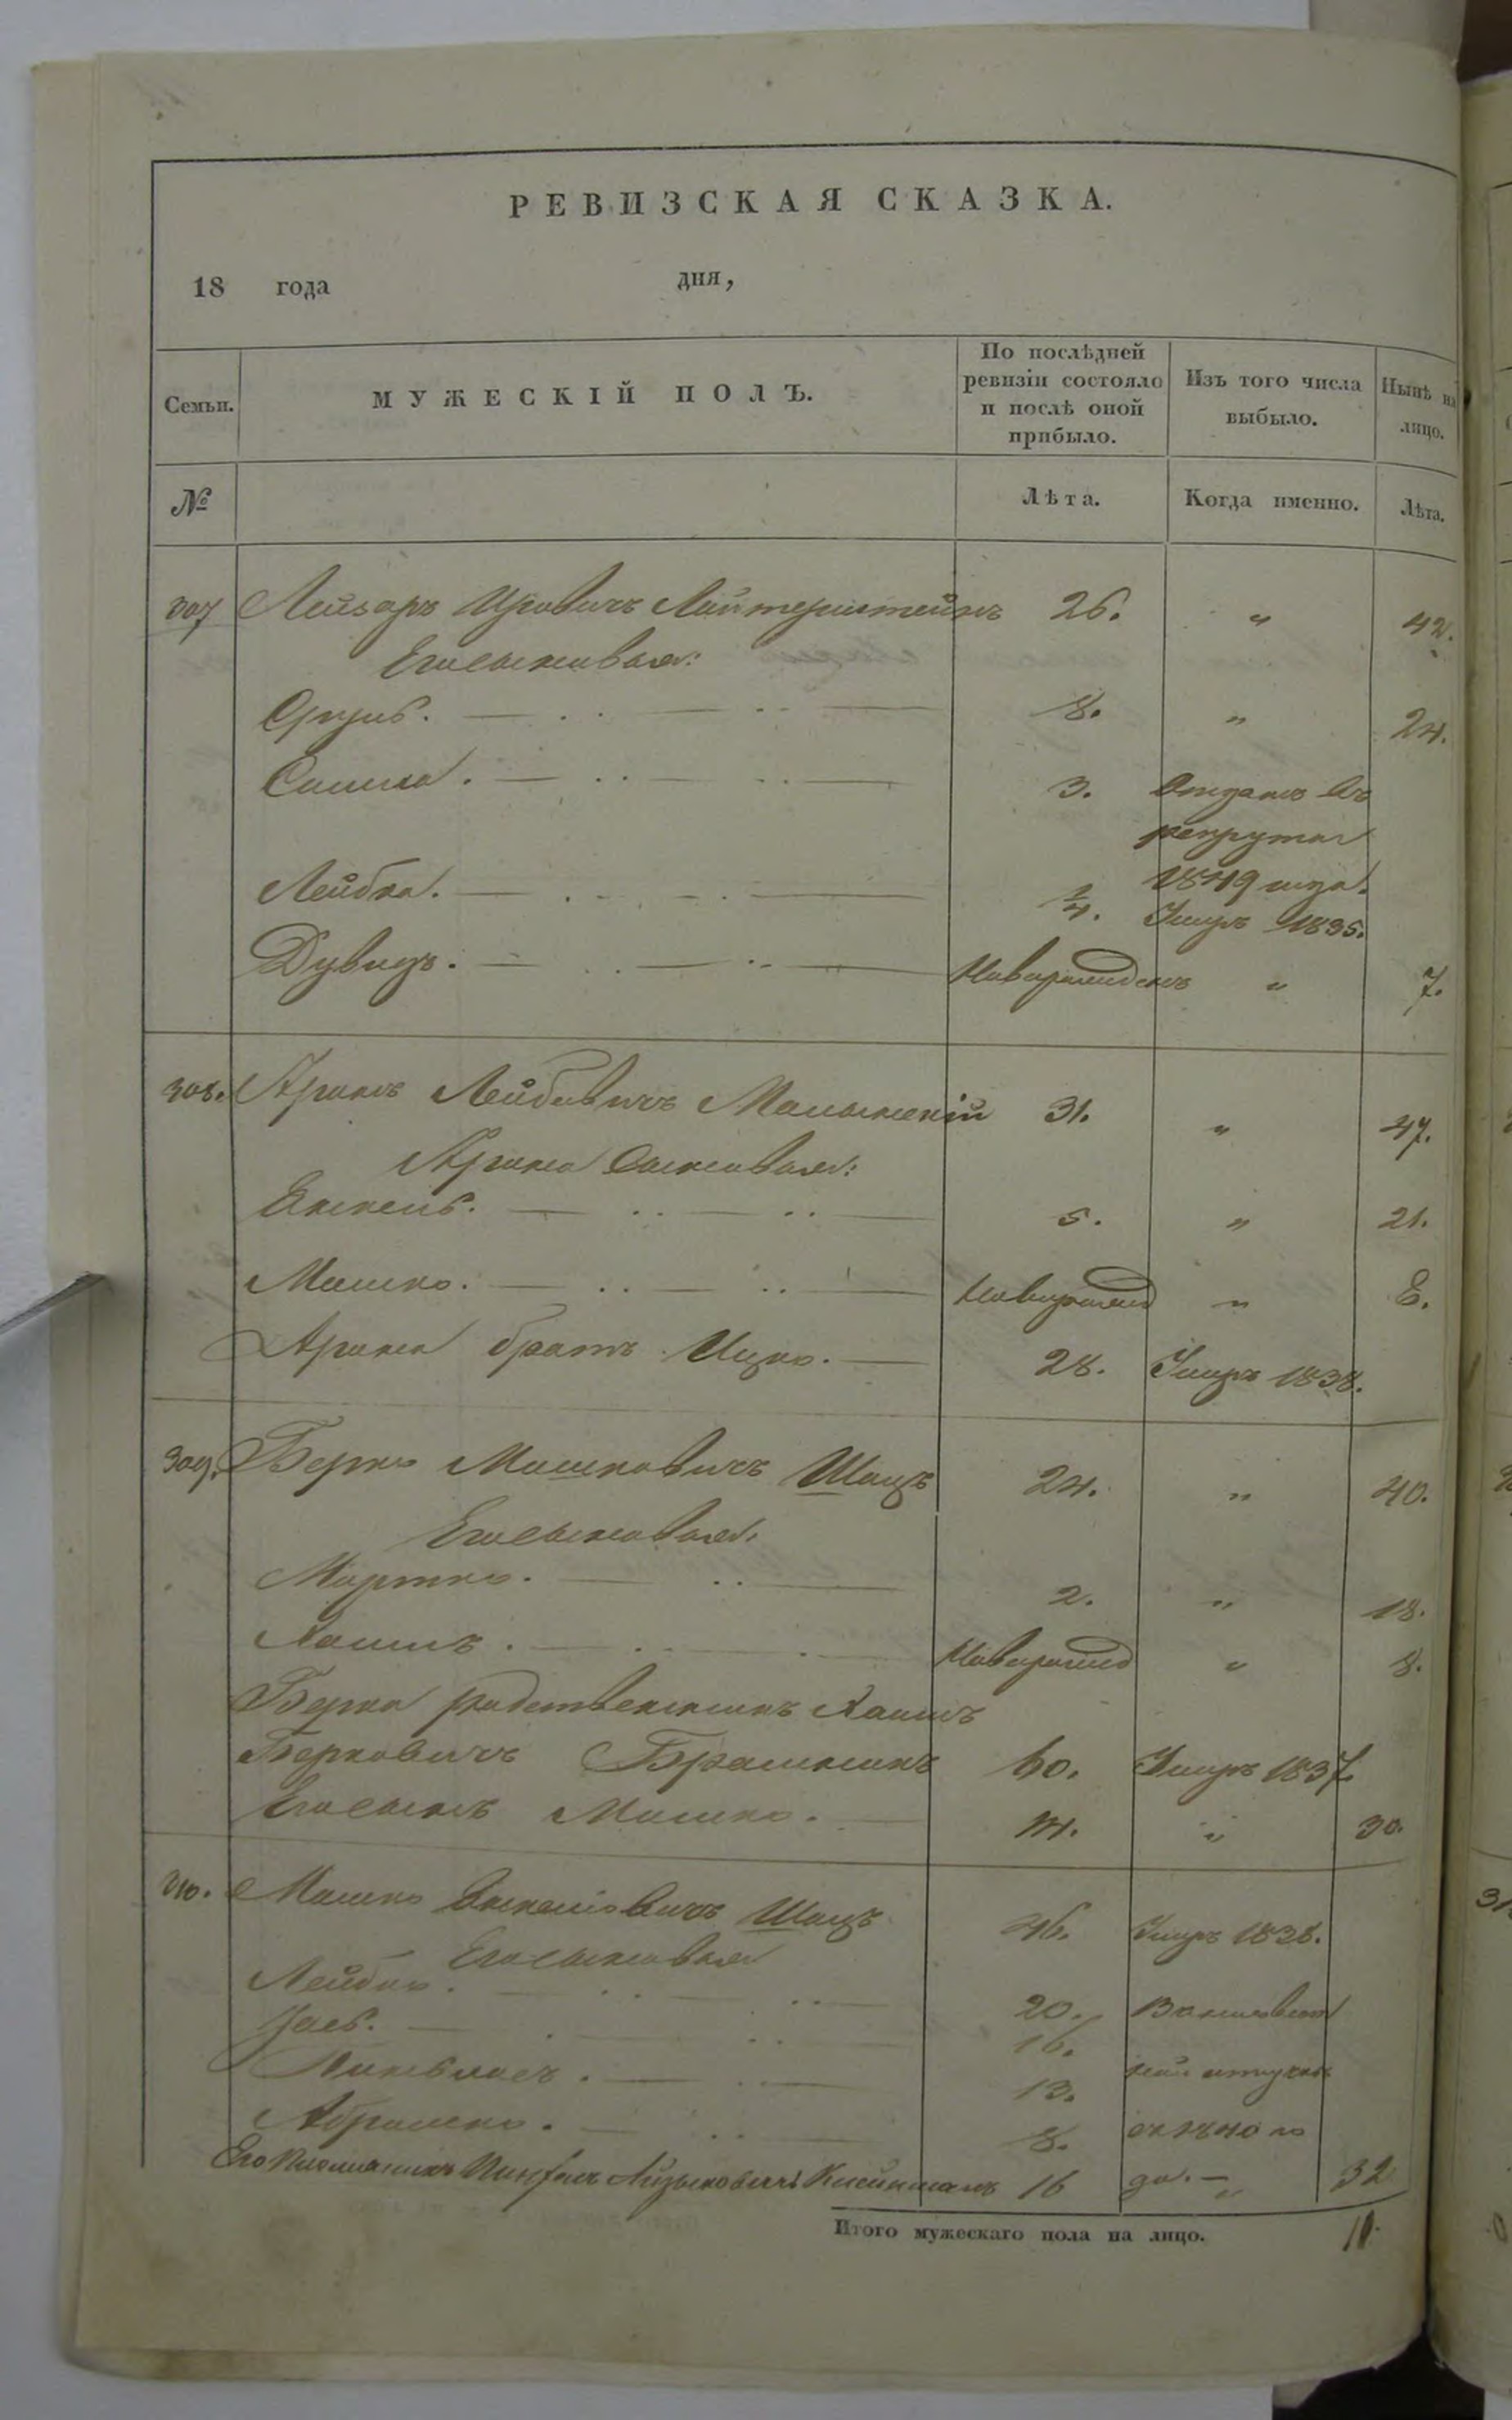 РЕВИЗСКАЯ СКАЗКА.
18 года дня,
Семьи. МУЖЕСКІЙ ПОЛЪ. По послѣдней ревизіи состояло и послѣ оной прибыло. Изъ того числа выбыло. Нынѣ на лицо.
№ Лѣта. Когда именно. Лѣта.
307 Лейзаръ Ицковичъ 26. " 42.
Его сыновья:
8. " 24.
3. Отданъ въ
рекруты
1849 года.
Лейбка. 3/4. Умеръ 1835.
Дувидъ. Новорожденъ " 7.
308. Аронъ Лейбовичъ 31. " 47.
Арона сыновья:
5. " 21.
Мошко. Новорожд " 8.
Арона братъ Ицко. 28. Умеръ 1838.
309. Берко Мошковичъ Шацъ 24. " 40.
Его сыновья:
Мортко. 2. " 18.
Хаимъ. Новорожд " 8.
Берка родственникъ Хаимъ
Берковичъ 60. Умеръ 1837.
Его сынъ Мошко. 14. " 30.
310. Мошко Шацъ 46. Умеръ 1838.
Его сыновья
Лейбко. 20.
16.
Пинхасъ. 13.
Абрамко. 8. съ 1840 го
Его племянникъ 16 да. — " 32
Итого мужескаго пола на лицо. 11.